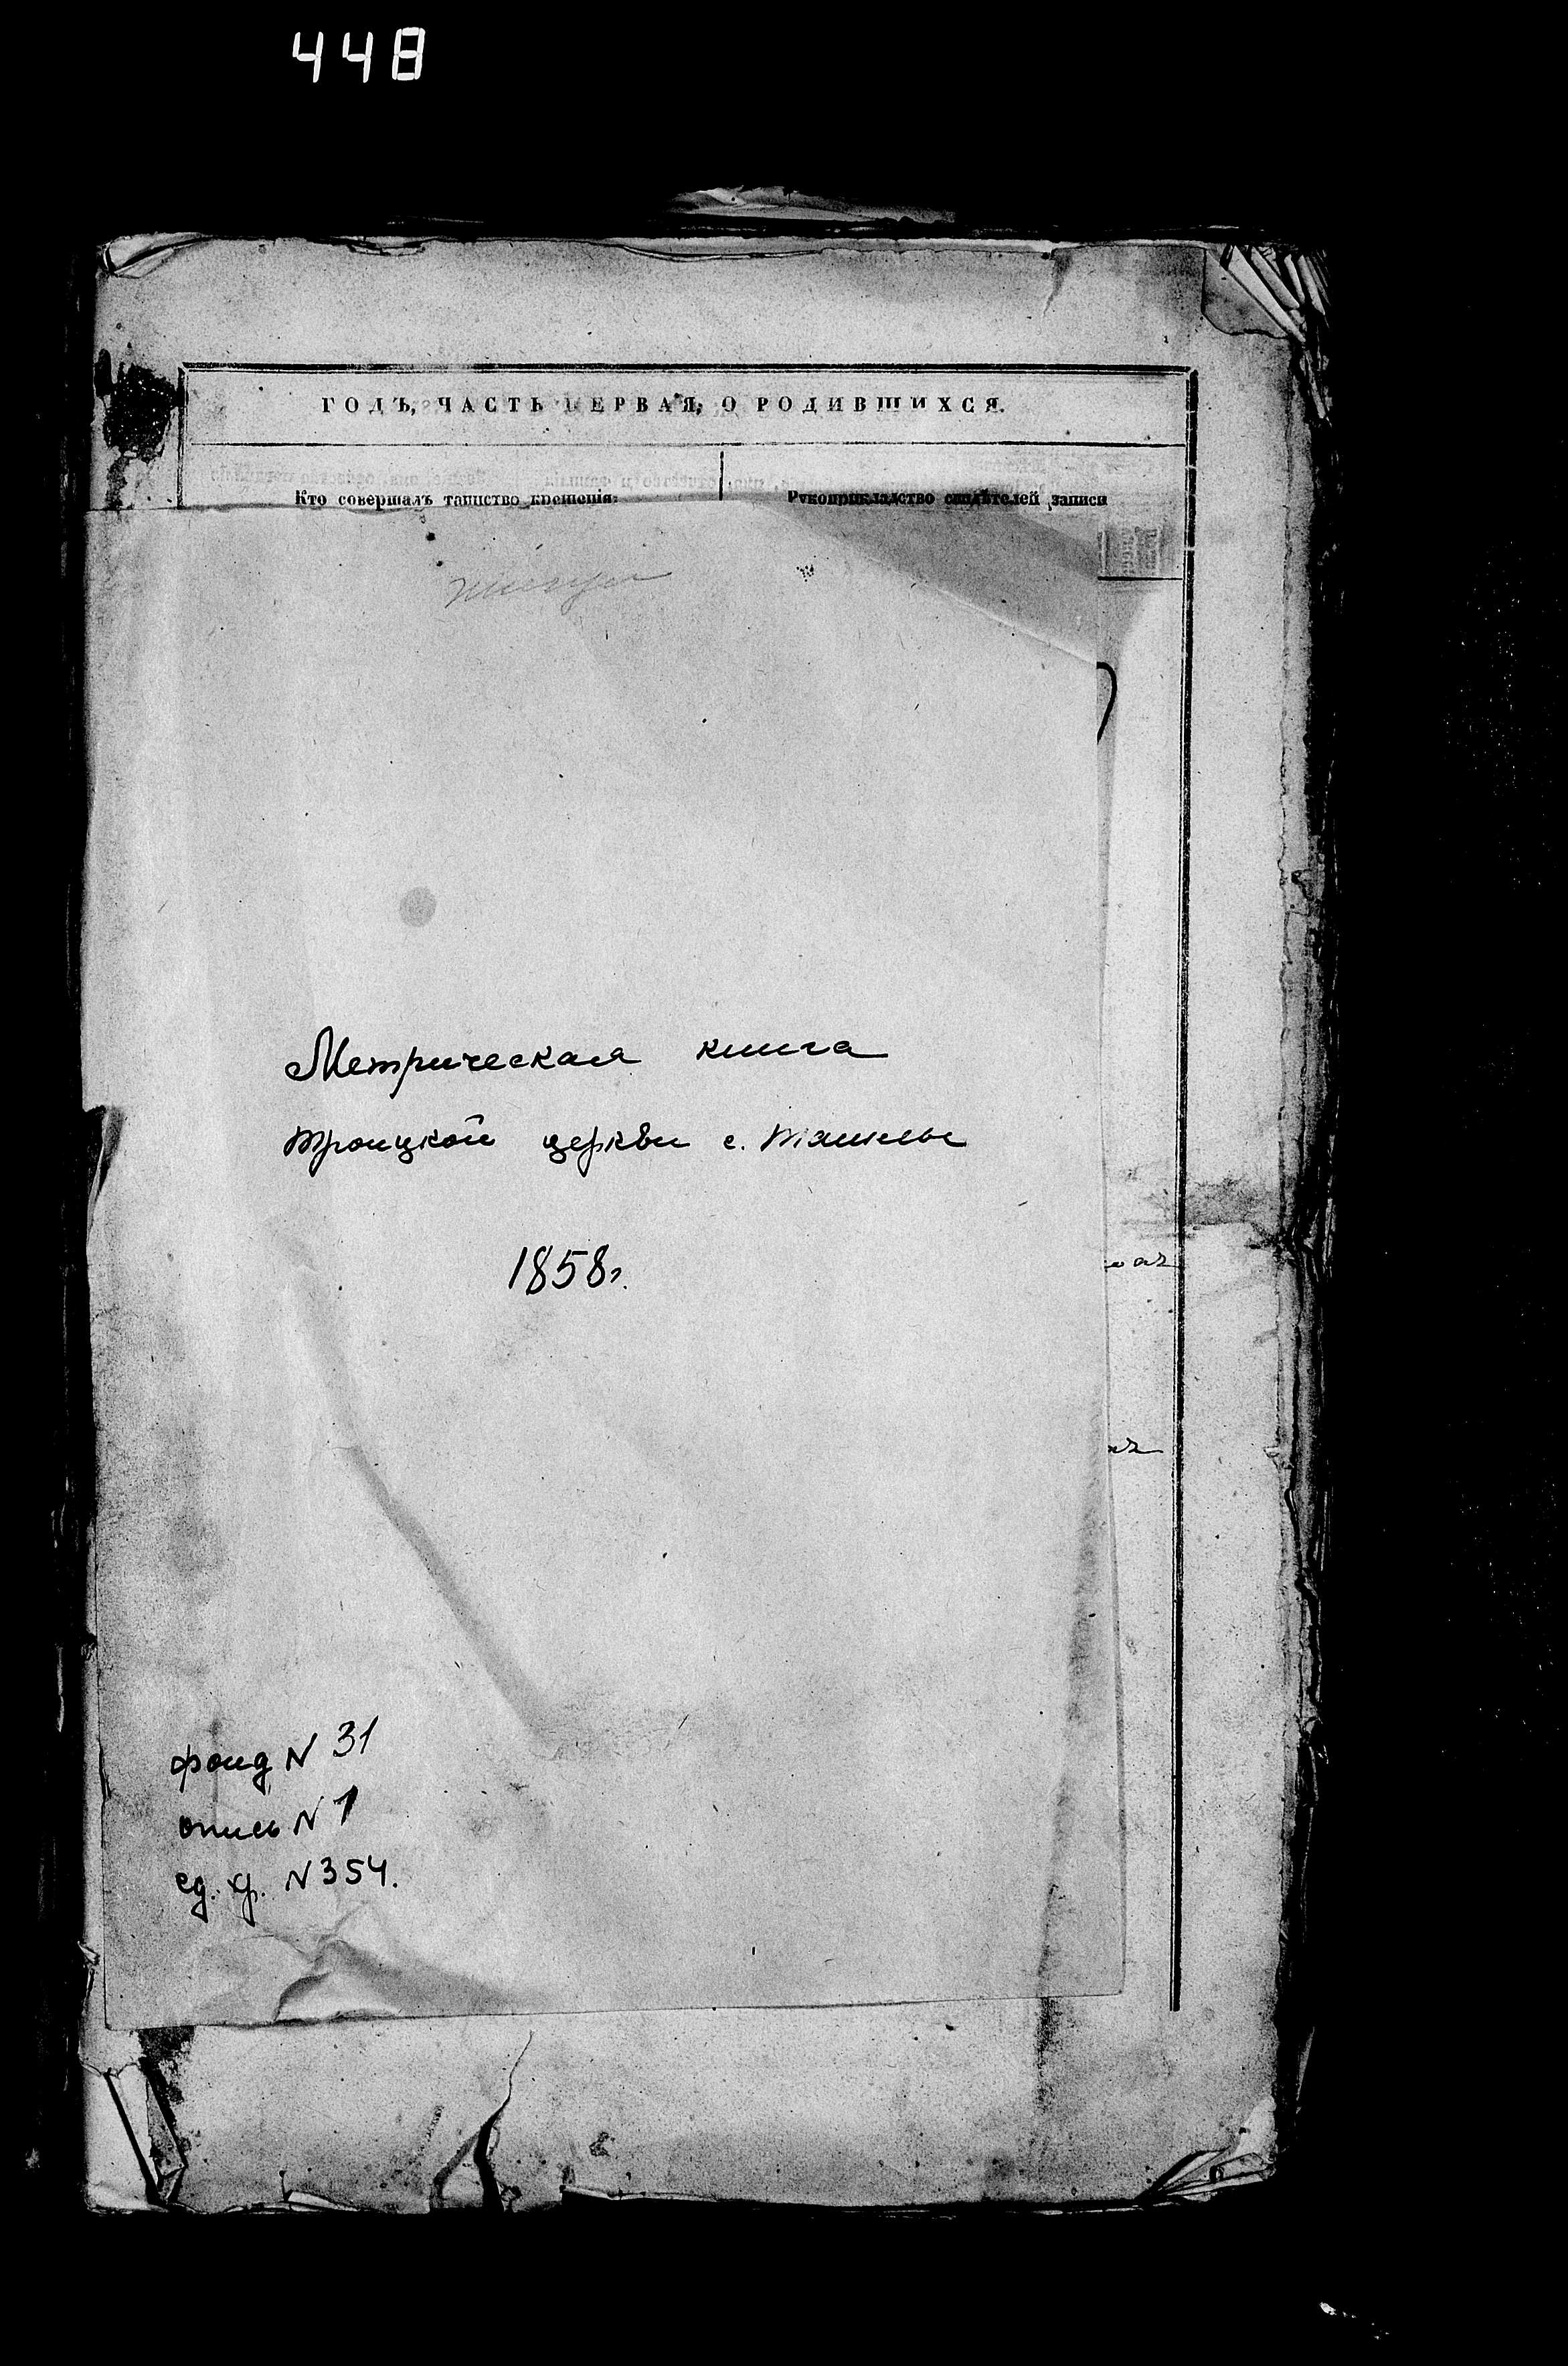 448
ГОДЪ, ЧАСТЬ ПЕРВАЯ, О РОДИВШИХСЯ.
Кто совершалъ таинство крещенія:
Рукоприкладство свидѣтелей записи
Метрическая книга
Троицкой церкви с. Ташлы
1858г.
фонд N 31
опись N 1
ед. хр. N 354.